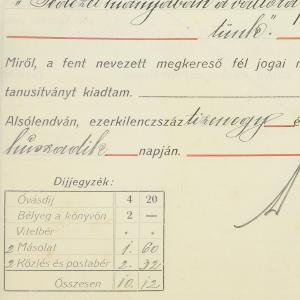 " Fedezet hiányában a váltóra
tünk".
Miről, a fent nevezett megkereső fél jogai
tanusitványt kiadtam.
Alsólendván, ezerkilenczszáz tizenegy é
huszadik napján.
Dijjegyzék:
Óvásdíj 4 20
Bélyeg a könyvön 2 —
Vitelbér . .
2 Másolat 1. 60
2 Közlés és postabér 2. 32
Összesen 10. 12